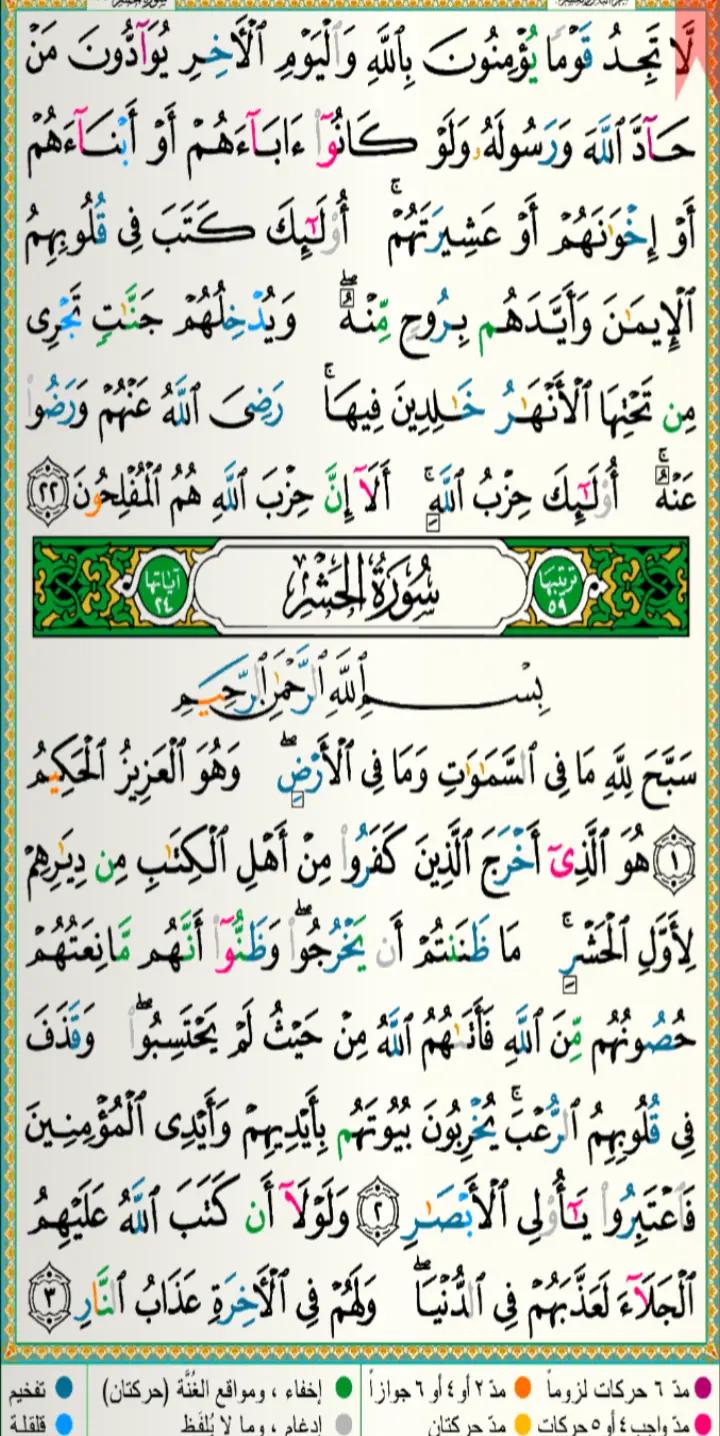 لَّا تَجِدُ قَوْمًا يُؤْمِنُونَ بِٱللَّهِ وَٱلْيَوْمِ ٱلْأَخِرِ يُوَآدُّونَ مَنْ
حَآدَّ ٱللَّهَ وَرَسُولَهُۥ وَلَوْ كَانُوٓا۟ ءَابَآءَهُمْ أَوْ أَبْنَآءَهُمْ
أَوْ إِخْوَٰنَهُمْ أَوْ عَشِيرَتَهُمْ ۚ أُو۟لَٰٓئِكَ كَتَبَ فِى قُلُوبِهِمُ
ٱلْإِيمَٰنَ وَأَيَّدَهُم بِرُوحٍ مِّنْهُ ۖ وَيُدْخِلُهُمْ جَنَّٰتٍ تَجْرِى
مِن تَحْتِهَا ٱلْأَنْهَٰرُ خَٰلِدِينَ فِيهَا ۚ رَضِىَ ٱللَّهُ عَنْهُمْ وَرَضُوا۟
عَنْهُ ۚ أُو۟لَٰٓئِكَ حِزْبُ ٱللَّهِ ۚ أَلَآ إِنَّ حِزْبَ ٱللَّهِ هُمُ ٱلْمُفْلِحُونَ ٢٢
ترتيبها ٥٩ سُورَةُ الْحَشْرِ آياتها ٢٤
بِسْمِ ٱللَّهِ ٱلرَّحْمَٰنِ ٱلرَّحِيمِ
سَبَّحَ لِلَّهِ مَا فِى ٱلسَّمَٰوَٰتِ وَمَا فِى ٱلْأَرْضِ ۖ وَهُوَ ٱلْعَزِيزُ ٱلْحَكِيمُ
١ هُوَ ٱلَّذِىٓ أَخْرَجَ ٱلَّذِينَ كَفَرُوا۟ مِنْ أَهْلِ ٱلْكِتَٰبِ مِن دِيَٰرِهِمْ
لِأَوَّلِ ٱلْحَشْرِ ۚ مَا ظَنَنتُمْ أَن يَخْرُجُوا۟ ۖ وَظَنُّوٓا۟ أَنَّهُم مَّانِعَتُهُمْ
حُصُونُهُم مِّنَ ٱللَّهِ فَأَتَىٰهُمُ ٱللَّهُ مِنْ حَيْثُ لَمْ يَحْتَسِبُوا۟ ۖ وَقَذَفَ
فِى قُلُوبِهِمُ ٱلرُّعْبَ ۚ يُخْرِبُونَ بُيُوتَهُم بِأَيْدِيهِمْ وَأَيْدِى ٱلْمُؤْمِنِينَ
فَٱعْتَبِرُوا۟ يَٰٓأُو۟لِى ٱلْأَبْصَٰرِ ٢ وَلَوْلَآ أَن كَتَبَ ٱللَّهُ عَلَيْهِمُ
ٱلْجَلَآءَ لَعَذَّبَهُمْ فِى ٱلدُّنْيَا ۖ وَلَهُمْ فِى ٱلْأَخِرَةِ عَذَابُ ٱلنَّارِ ٣
مدّ ٦ حركات لزوماً مدّ ٢ أو ٤ أو ٦ جوازاً إخفاء ، ومواقع الغُنَّة (حركتان) تفخيم
مدّ واجب ٤ أو ٥ حركات مدّ حركتان إدغام ، وما لا يُلفَظ قلقلة